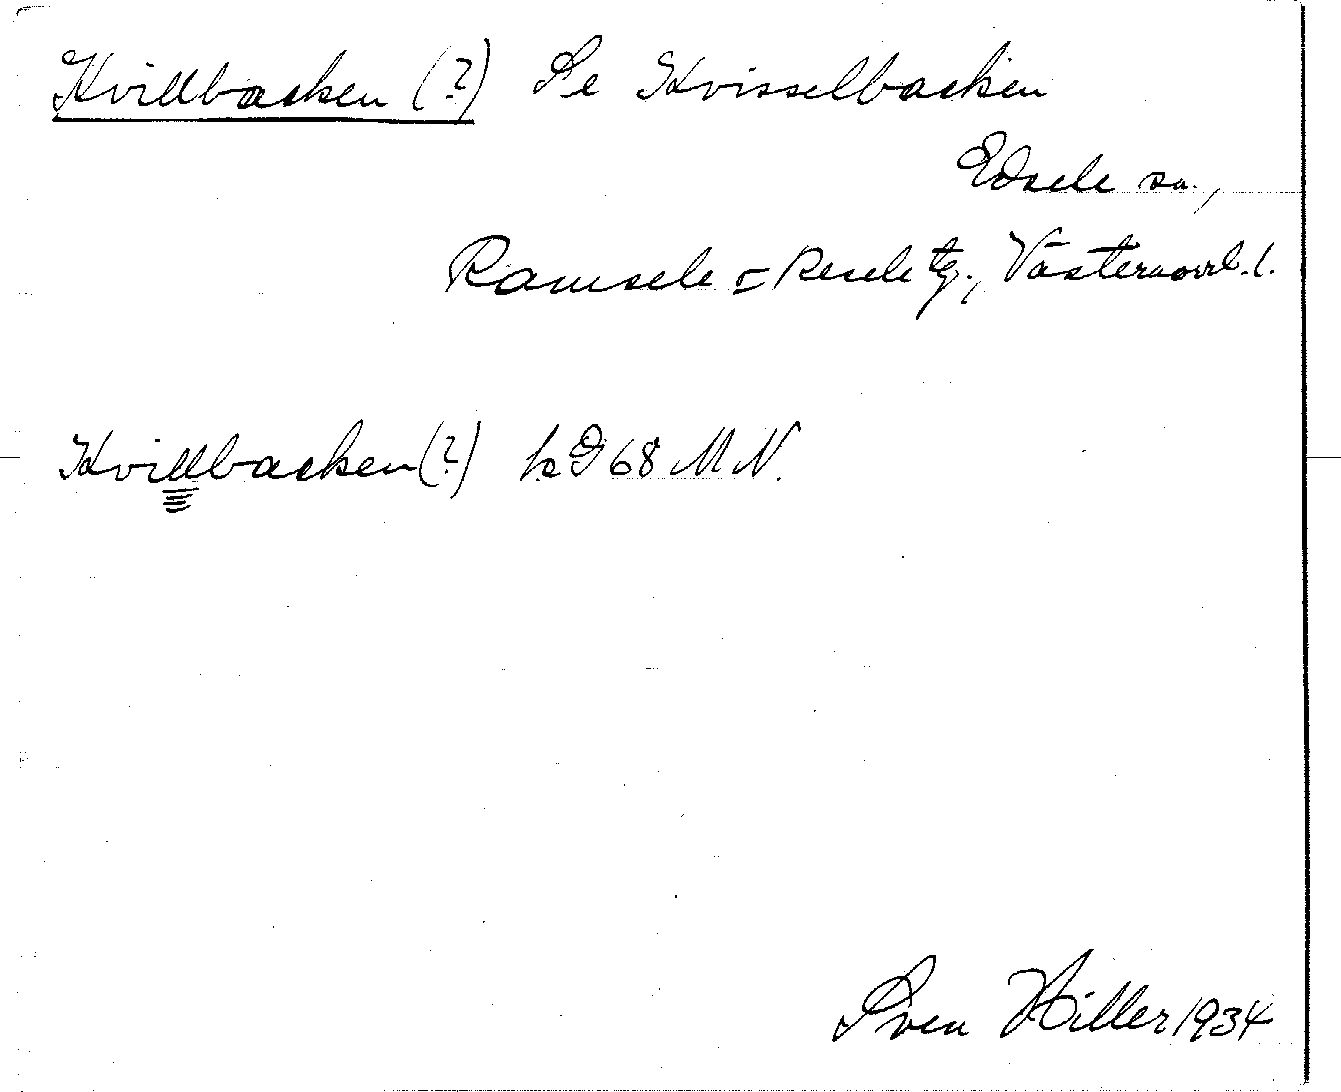 Kvillbacken (?) Se Kvisselbacken
Edsele sn.,
Ramsele o Resele tg., Västernorrl. l.
Kvillbacken (?) 68 M N.
Sven Hiller 1934